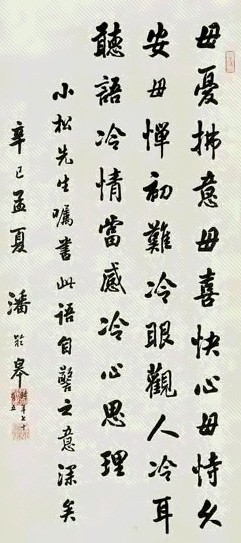 毋憂拂意毋喜快心毋恃久
安毋憚初難冷眼觀人冷耳
聽語冷情當感冷心思理
小松先生囑書此語自警之意深矣
辛巳孟夏 潘龄皋